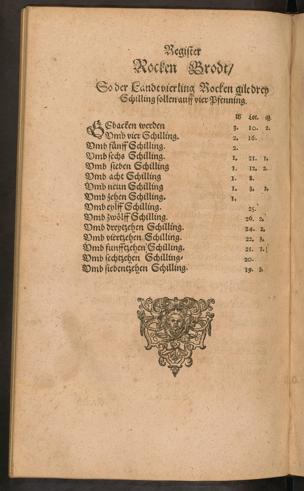 Register
Rocken Brodt/
So der Landtvierling Rocken gilt drey
Schilling sollen auff vier Pfenning.
℔ Lot. Q.
Gebacken werden 3. 10. 2.
Vmb vier Schilling. 2. 16.
Vmb fünff Schilling. 2.
Vmb sechs Schilling. 1. 21. 1.
Vmb sieben Schilling 1. 12. 2.
Vmb acht Schilling 1. 8.
Vmb neun Schilling 1. 3. 2.
Vmb zehen Schilling. 1.
Vmb eylff Schilling. 25.
Vmb zwölff Schilling. 26. 2.
Vmb dreytzehen Schilling. 24. 2.
Vmb viertzehen Schilling. 22. 3.
Vmb funfftzehen Schilling. 21. 1.
Vmb sechtzehen Schilling. 20.
Vmb siebentzehen Schilling. 19.